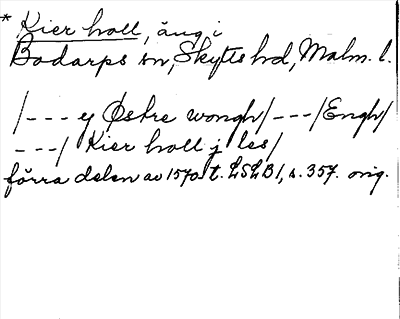 * Kier holl, äng i
Bodarps sn, Skytts hd, Malm. l.
/--- y Østre wongh/---/Engh/
---/ Kier holl j les/
förra delen av 1570-t. LSLB 1, s. 357. orig.